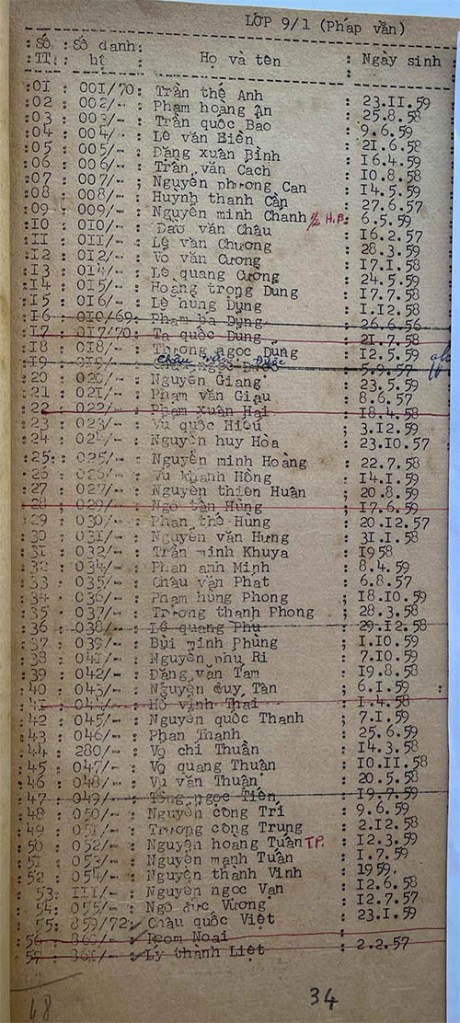 LỚP 9/1 (Pháp văn)
:Số :Số danh: Họ và tên : Ngày sinh
:TT.: bộ :
:01 : 001/70: Trần thế Anh : 23.11.59
:02 : 002/-- : Phạm hoàng Ân : 25.8.58
:03 : 003/-- : Trần quốc Bao : 9.6.59
:04 : 004/-- : Lê văn Biên : 21.6.58
:05 : 005/-- : Đặng xuân Bình : 16.4.59
:06 : 006/-- : Trần văn Cach : 10.8.58
:07 : 007/-- ; Nguyễn phương Can : 14.5.59
:08 : 008/-- : Huỳnh thanh Cần : 27.6.57
:09 : 009/-- : Nguyễn minh Chanh H.P. : 6.5.59
:10 : 010/-- : Đào văn Châu : 16.2.57
:11 : 011/-- : Lê văn Chương : 28.3.59
:12 : 012/-- : Võ văn Cương : 17.1.58
:13 : 014/-- : Lê quang Cường : 24.5.59
:14 : 015/-- : Hoàng trọng Dung : 17.7.58
:15 : 016/-- : Lê hùng Dũng : 1.12.58
:16 : 010/69: Phạm bá Dũng : 26.6.56
:17 : 017/70: Tạ quốc Dũng : 21.7.58
:18 : 018/-- : Trương ngọc Dũng : 12.5.59
:19 : 019/-- : Châu : 5.9.57
:20 : 020/-- : Nguyễn Giang : 23.5.59
:21 : 021/-- : Phạm văn Giau : 8.6.57
:22 : 022/-- : Phạm Xuân Hai : 18.4.58
:23 : 023/-- : Vũ quốc Hiếu ; 3.12.59
:24 : 024/-- : Nguyễn huy Hòa : 23.10.57
:25: : 025/-- : Nguyễn minh Hoàng : 22.7.58
:26 : 026/-- : Vũ khánh Hồng : 14.1.59
:27 : 027/-- : Nguyễn thiên Huân : 20.8.59
:28 : 029/-- : Ngô tấn Hùng : 17.6.59
:29 : 030/-- : Phan thế Hùng : 20.12.57
:30 : 031/-- : Nguyễn văn Hưng : 31.1.58
:31 : 032/-- : Trần minh Khuya : 1958
:32 : 034/-- : Phan anh Minh : 8.4.59
:33 : 035/-- : Châu văn Phat : 6.8.57
:34 : 036/-- : Phạm hùng Phong ; 18.10.59
:35 : 037/-- : Trương thanh Phong : 28.3.58
:36 : 038/-- : Lê quang Phu : 29.12.58
:37 : 039/-- : Bùi minh Phùng ; 1.10.59
:38 : 041/-- : Nguyễn phu Ri : 7.10.59
:39 : 042/-- : Đặng văn Tam : 19.8.58
:40 : 043/-- : Nguyễn duy Tân ; 6.1.59
:41 : 044/-- : Hồ vĩnh Thai : 1.4.58
:42 : 045/-- : Nguyễn quốc Thanh ; 7.1.59
:43 : 046/-- : Phan Thanh : 25.6.59
:44 : 280/-- : Võ chi Thuần : 14.3.58
:45 : 047/-- : Võ quang Thuận : 10.11.58
:46 : 048/-- : Vũ văn Thuận : 20.5.58
:47 : 049/-- : Tống ngọc Tiên : 19.7.59
:48 : 050/-- : Nguyễn công Trí : 9.6.59
:49 : 051/-- : Trương công Trung : 2.12.58
:50 : 052/-- : Nguyễn hoàng Tuấn T.P. : 12.3.59
:51 : 053/-- : Nguyễn mạnh Tuấn : 1.7.59
:52 : 054/-- : Nguyễn thanh Vinh : 1959.
:53: 111/-- : Nguyễn ngọc Vạn : 12.6.58
:54: 055/-- : Ngô đức Vương : 12.7.57
:55: 859/72: Châu quốc Việt : 23.1.59
:56 : 860/-- :
:57 : 861/-- : Lý thanh Liệt : 2.2.57
48 34